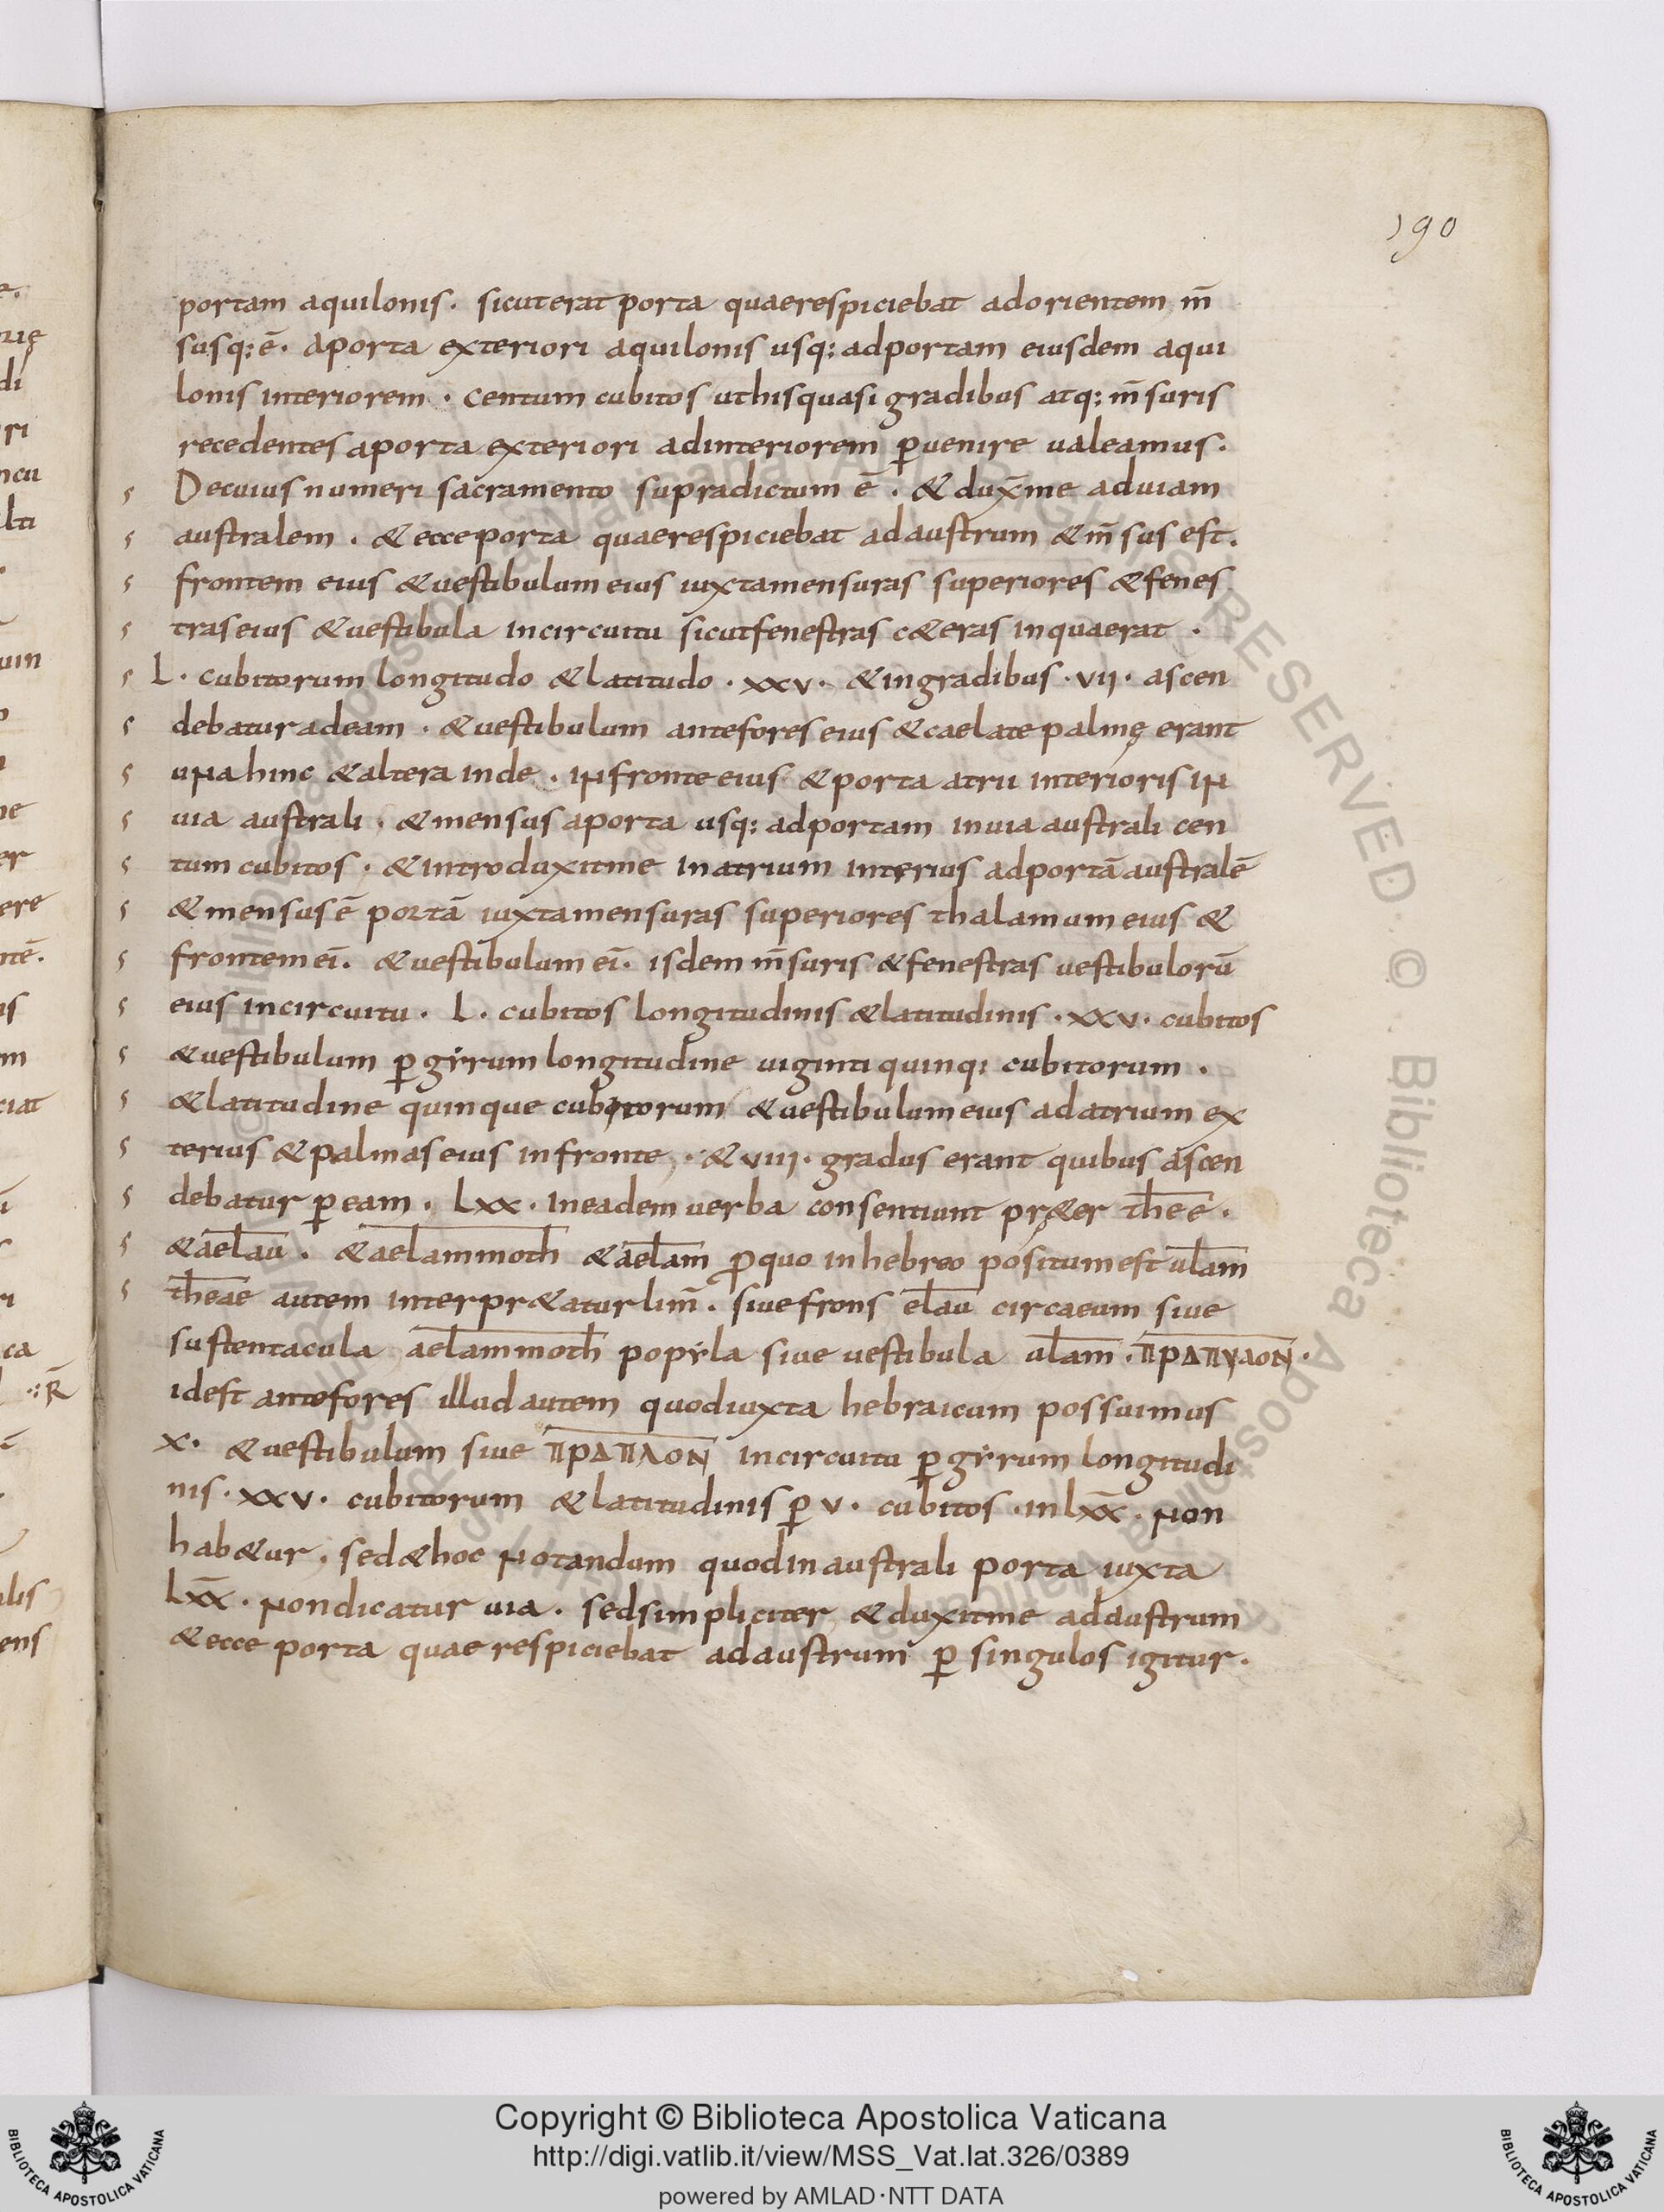 190
portam aquilonis. sicuterat porta quaerespiciebat adorientem m̄
susq:ē. Aporta exteriori aquilonis usq: adportam eiusdem aqui
lonis interiorem · centum cubitos uthisquasi gradibus atq: m̄suris
recedentes aporta exteriori adinteriorem ꝑuenire ualeamus.
Decuius numeri sacramento supradictum ē. & dux̄me aduiam
australem. & ecceporta quaerespiciebat adaustrum & m̄sus est.
frontem eius & uestibulum eius iuxtamensuras superiores & fenes
traseius & uestibula incircuitu sicutfenestras c&eras inquaerat ·
L. cubitorum longitudo & latitudo · xxv · & ingradibus · vii · ascen
debaturadeam · & uestibulum antefores eius & caelate palmę erant
una hinc & altera inde. infronte eius & porta atrii interioris in
uia australi. & mensus aporta usq: adportam inuia australi cen
tum cubitos · & introduxitme inatrium interius adportā australē
& mensusē portā iuxtamensuras superiores thalamum eius &
frontem eī. & uestibulum eī. isdem m̄suris & fenestras uestibulorū
eius incircuitu. L. cubitos longitudinis & latitudinis · xxv · cubitos
& uestibulum ꝑ gẏrum longitudine uiginti quinq: cubitorum.
& latitudine quinque cubitorum & uestibulum eius adatrium ex
terius & palmas eius infronte. & viii · gradus erant quibus ascen
debatur ꝑ eam. Lxx · ineadem uerba consentiunt pr&er thee.
& aelau. & aelammoth & aelam ꝓquo inhebreo positumest ulam
theae autem interpr&aturlim̄. siuefrons elau circaeum siue
sustentacula aelammoth popẏla siue uestibula ulam. ΠΡΔΠΥΛΟΝ.
idest antefores illud autem quodiuxta hebraicum possuimus
x. & uestibulum siue ΠΡΔΠΛΟΝ incircuitu ꝑ gẏrum longitudi
nis · xxv · cubitorum & latitudinis ꝑ v · cubitos · inlxx · non
hab&ur. sed&hoc notandum quodinaustrali porta iuxta
Lxx · nondicatur uia. sedsimpliciter & duxitme adaustrum
& ecce porta quae respiciebat adaustrum ꝑ singulos igitur.
Copyright © Biblioteca Apostolica Vaticana
http://digi.vatlib.it/view/MSS_Vat.lat.326/0389
powered by AMLAD·NTT DATA
BIBLIOTECA APOSTOLICA VATICANA
BIBLIOTECA APOSTOLICA VATICANA